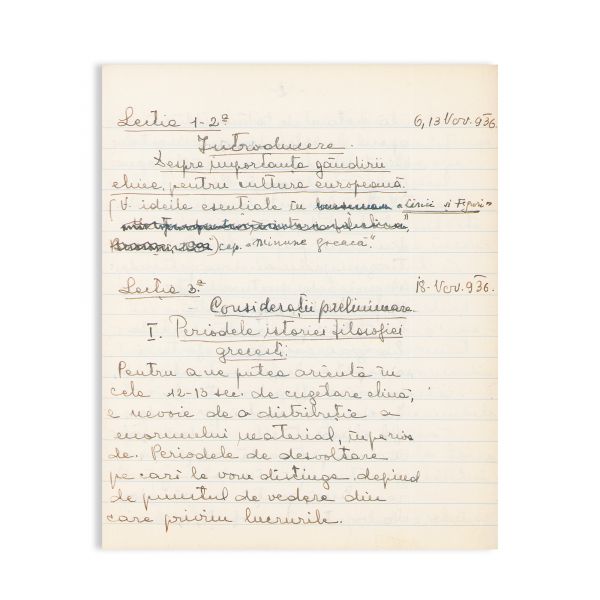 Lecția 1-2ª 6, 13 Nov. 936.
Introducere.
Despre importanța gândirii
eline, pentru cultura europeană.
(V. ideile esențiale în „Linii și Figuri"
cap. „Minune greacă".
Lecția 3.ª 13. Nov. 936.
Considerații preliminare.
I. Periodele istoriei filosofiei
grecești.
Pentru a ne putea orientà în
cele 12-13 sec. de cugetare elină,
e nevoie de o distribuție a
enormului material, în perioa
de. Periodele de desvoltare
pe cari le vom distinge depind
de punctul de vedere din
care privim lucrurile.